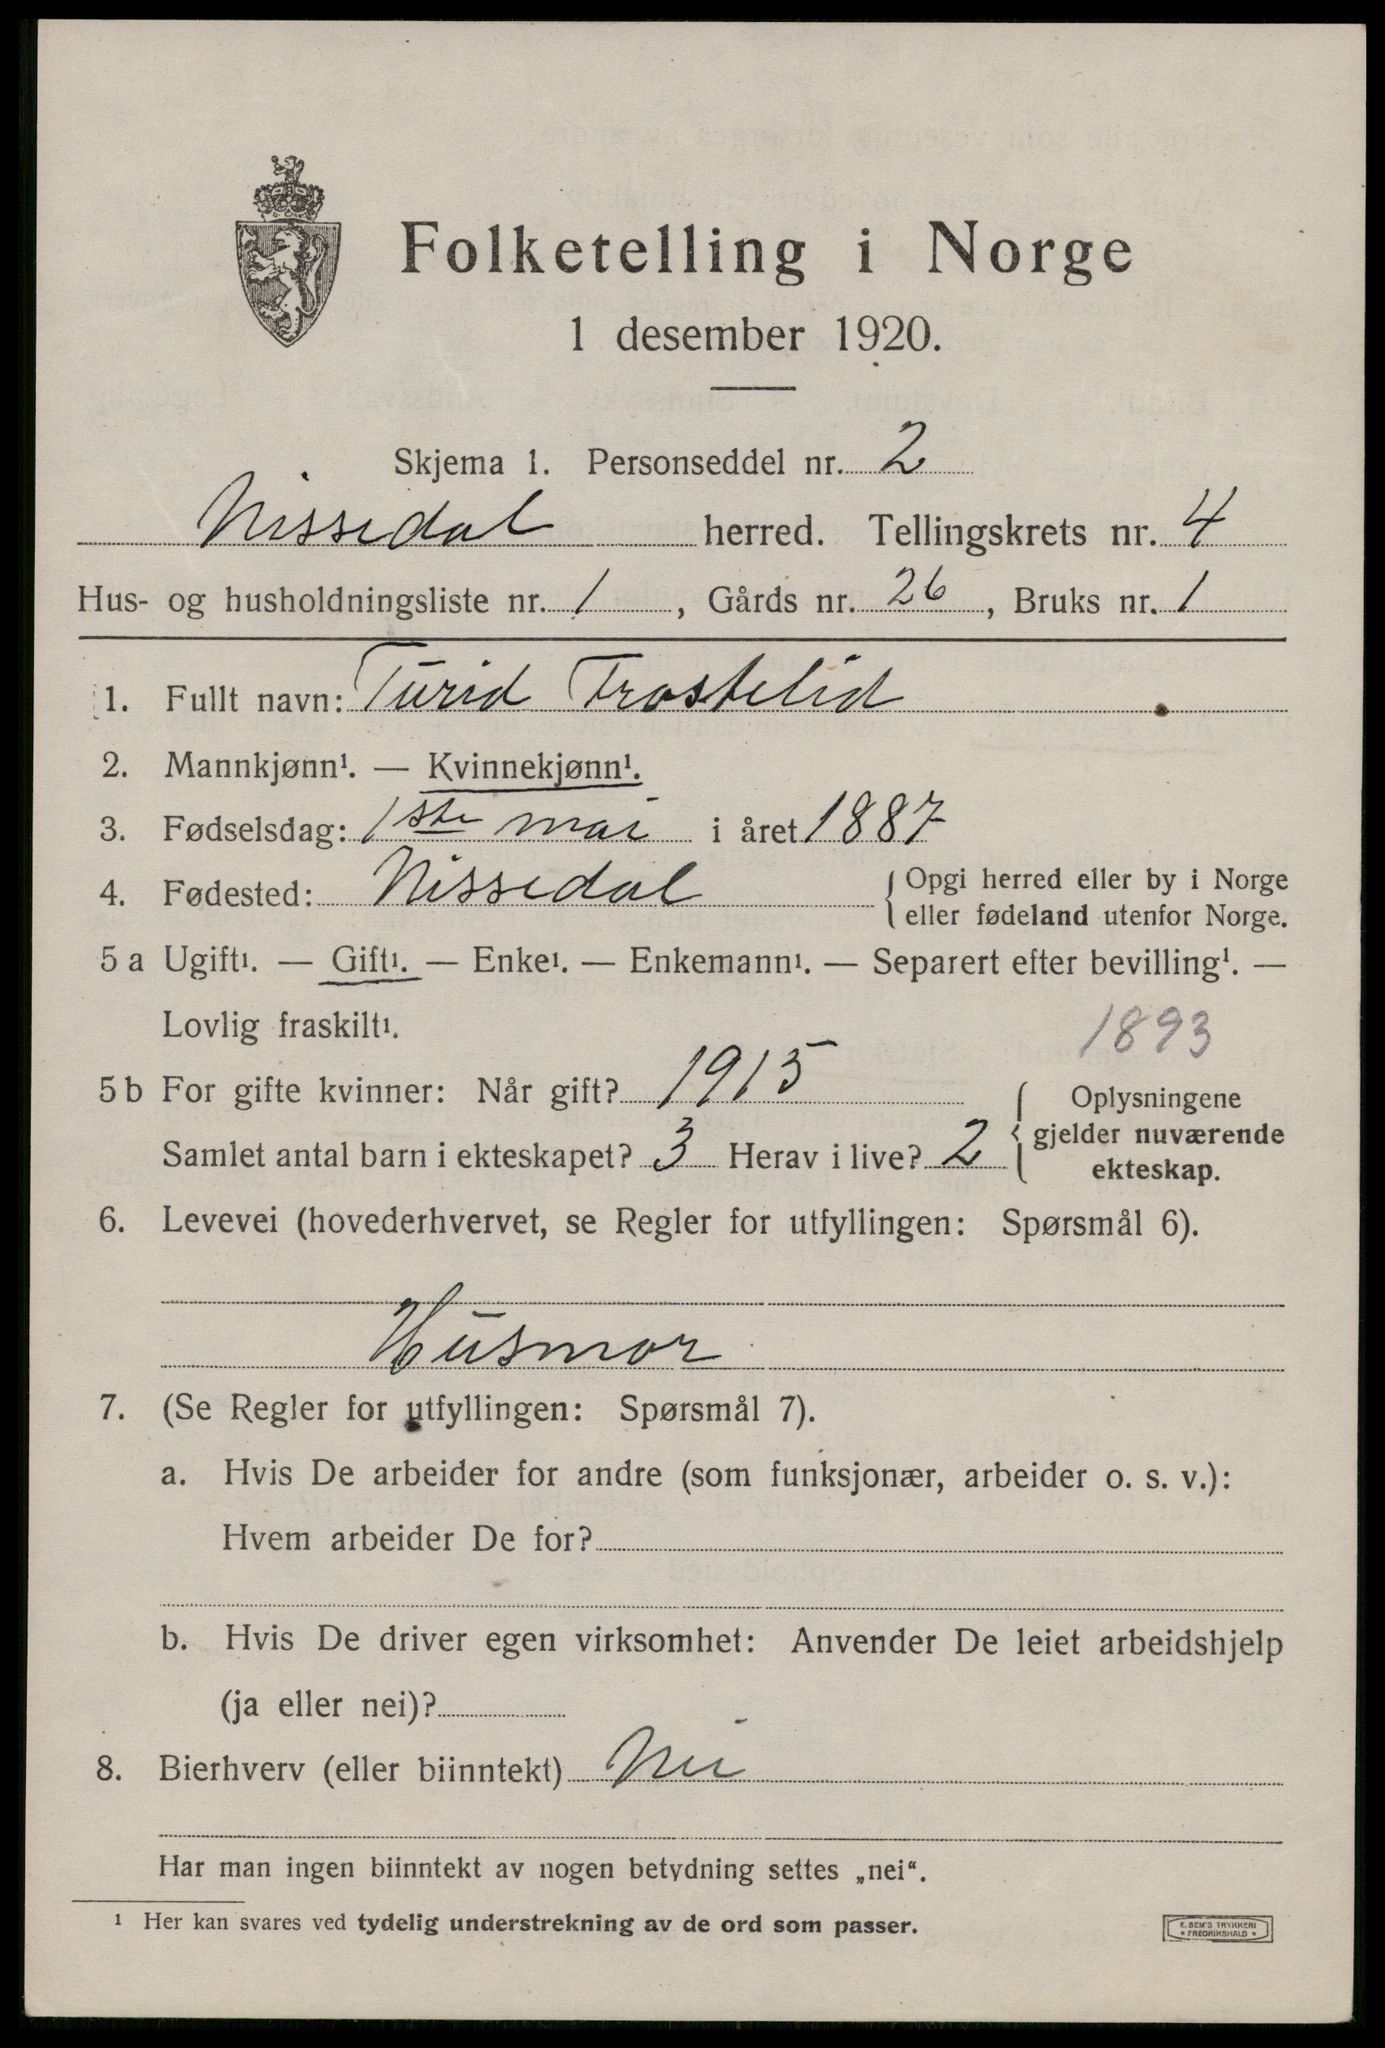 Folketelling i Norge
1 desember 1920.
Skjema 1. Personseddel nr. 2
Nissedal herred. Tellingskrets nr. 4
Hus- og husholdningsliste nr. 1, Gårds nr. 26, Bruks nr. 1
1. Fullt navn: Turid Trostelid
2. Mannkjønn¹. — Kvinnekjønn¹.
3. Fødselsdag: 1ste mai i året 1887
4. Fødested: Nissedal { Opgi herred eller by i Norge
eller fødeland utenfor Norge.
5 a Ugift¹. — Gift¹. — Enke¹. — Enkemann¹. — Separert efter bevilling¹. —
Lovlig fraskilt¹.
1893
5 b For gifte kvinner: Når gift? 1915
Samlet antal barn i ekteskapet? 3 Herav i live? 2
{ Oplysningene
gjelder nuværende
ekteskap.
6. Levevei (hovederhvervet, se Regler for utfyllingen: Spørsmål 6).
Husmor
7. (Se Regler for utfyllingen: Spørsmål 7).
a. Hvis De arbeider for andre (som funksjonær, arbeider o. s. v.):
Hvem arbeider De for?
b. Hvis De driver egen virksomhet: Anvender De leiet arbeidshjelp
(ja eller nei)?
8. Bierhverv (eller biinntekt) Nei
Har man ingen biinntekt av nogen betydning settes „nei“.
¹ Her kan svares ved tydelig understrekning av de ord som passer.
E. SEM'S TRYKKERI
* FREDRIKSHALD *